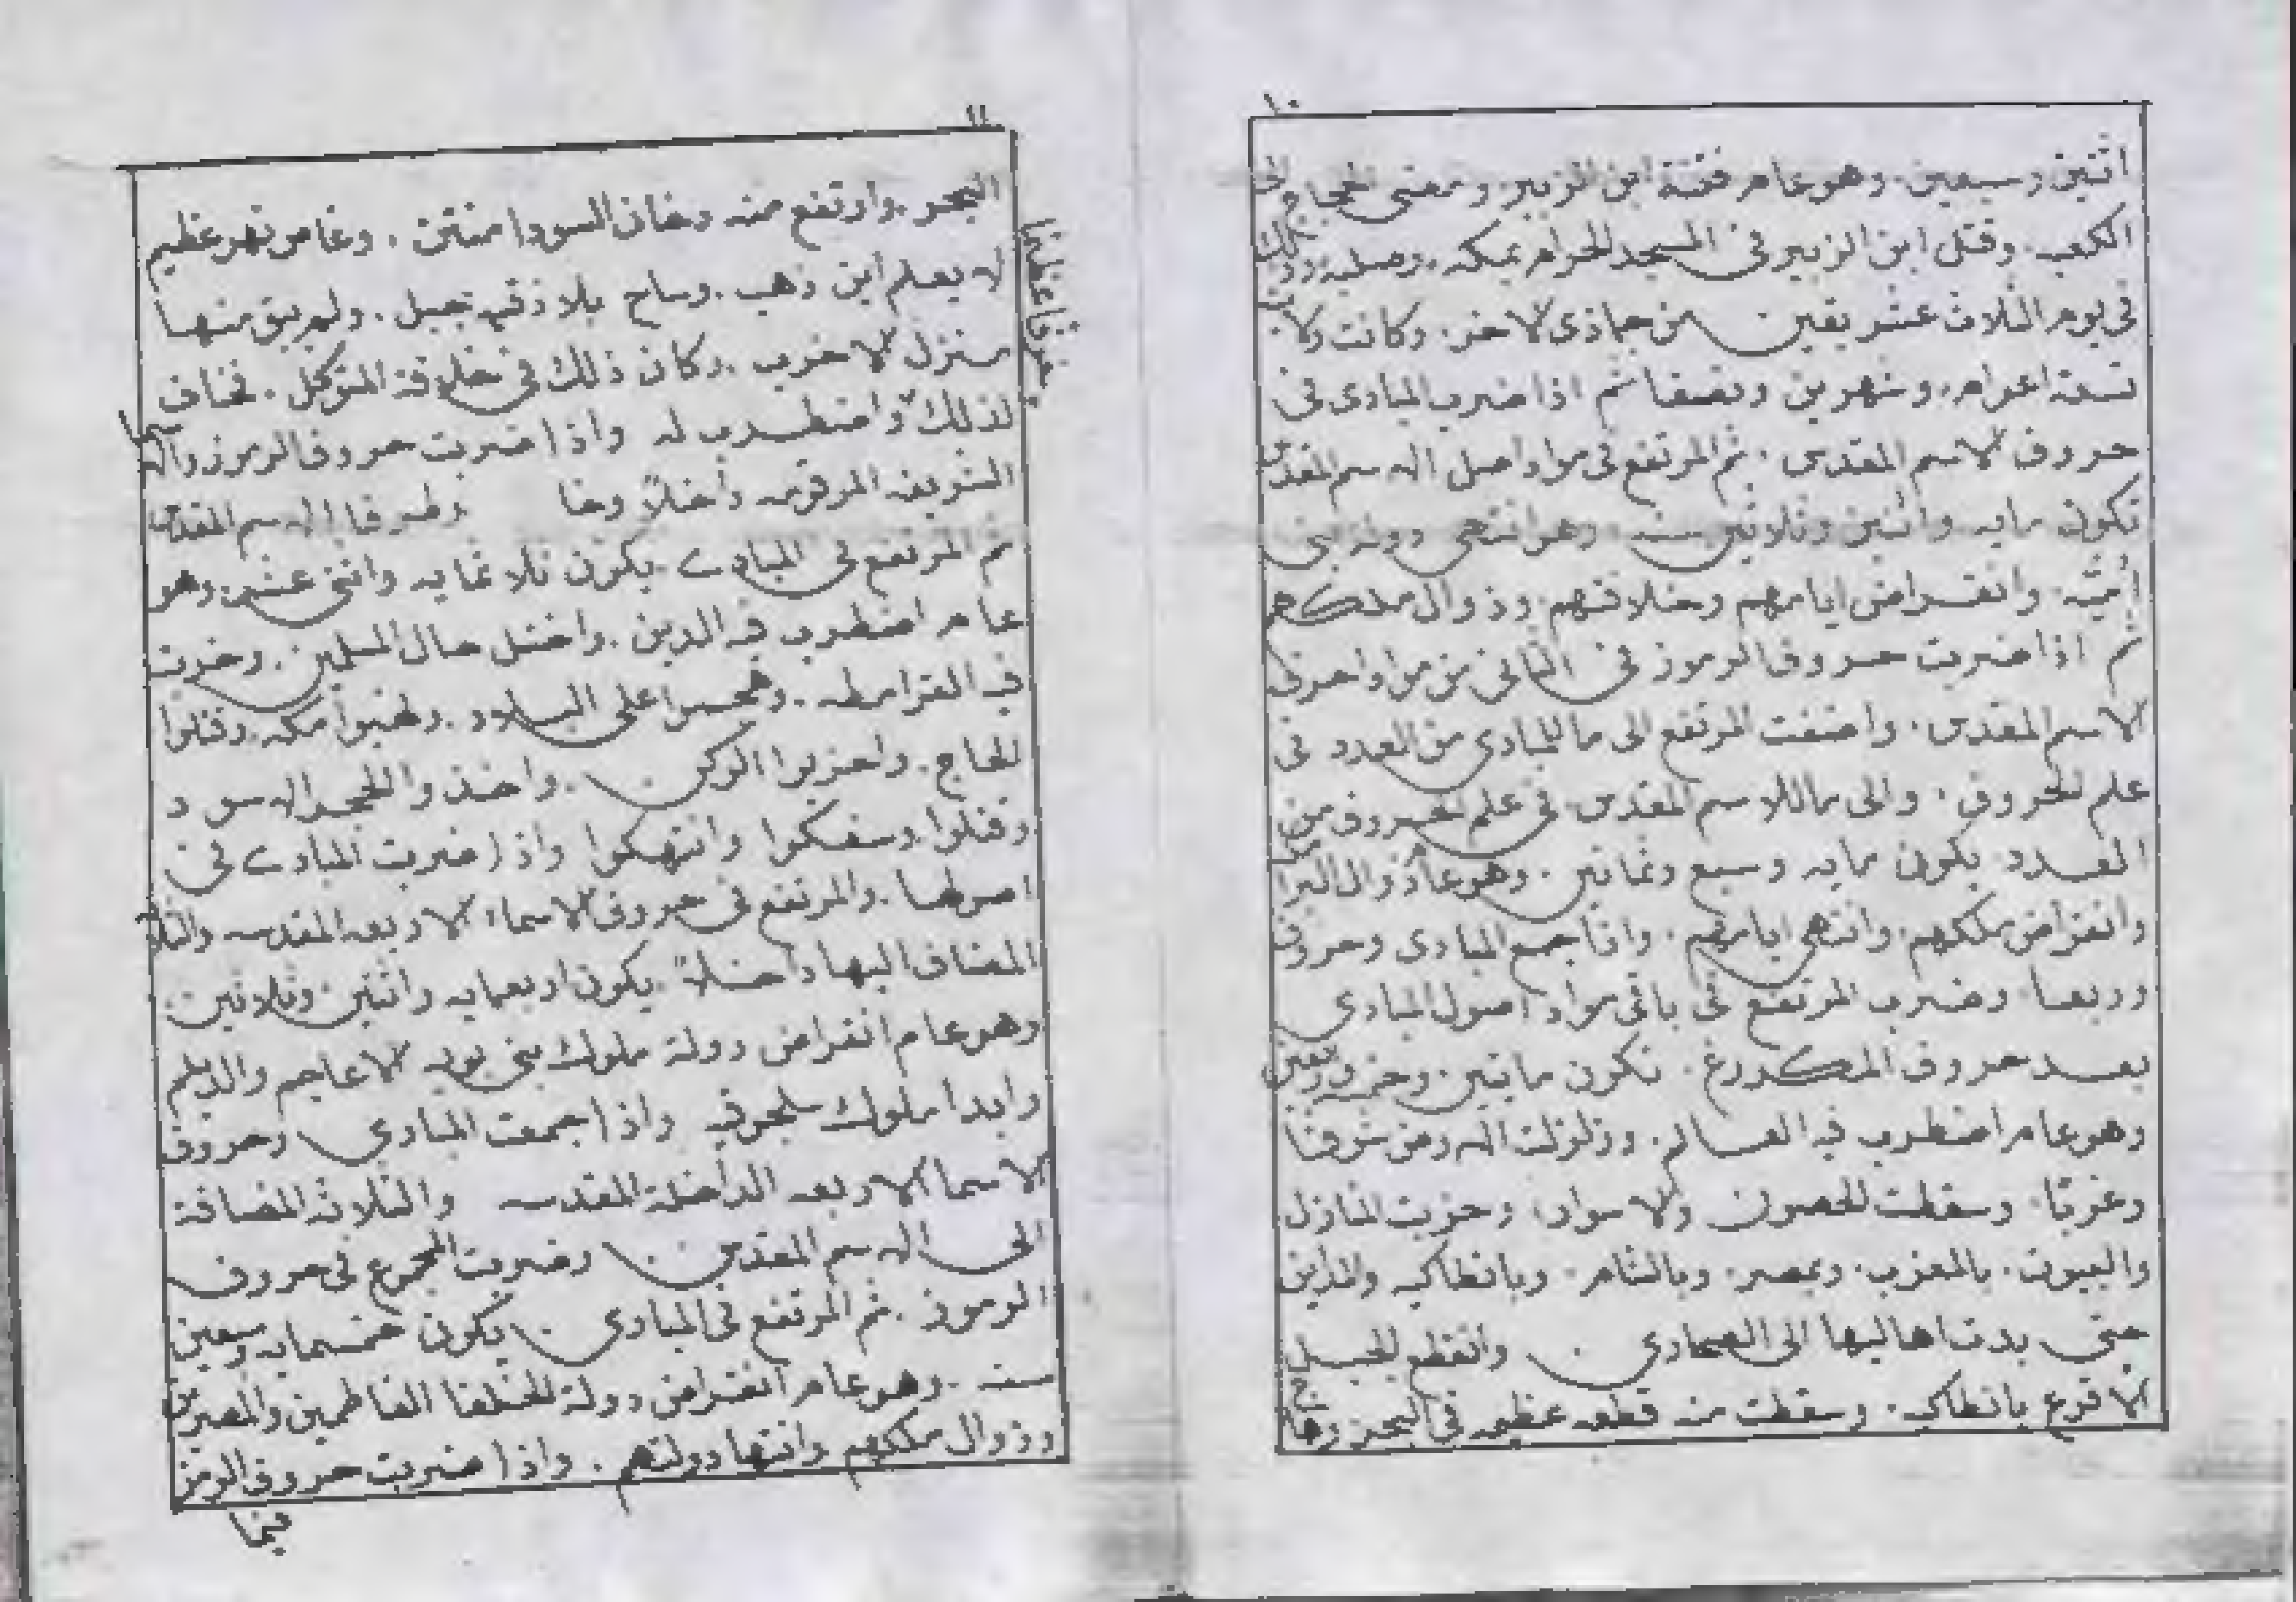 ١٠
اثنين وسبعين. وهو عام فتنة ابن الزبير. ومضى الحجاج الى
الكعبه. وقتل ابن الزبير فى المسجد الحرام بمكه. وصلبه وذلك
فى يوم الثلاث عشر بقين من جماذى الاخر. وكانت ولايته
تسعة اعوام. وشهرين ونصفا ثم اذا ضرب المبادى فى
حروف الاسم المقدس. ثم المرتفع فى مواد اصل الاسم المقدس
تكون مايه واثنين وثلاثين سنه وهو انتهى دولة بنى
أميّه. وانقراض ايامهم وخلافتهم. وزوال ملكهم
ثم اذا ضربت حروف الرموز فى الثانى من مواد احرف
الاسم المقدس. واضفت المرتفع الى ما للمبادى من العدد فى
علم الحروف. والى ما للاسم المقدس فى علم الحروف من
العدد يكون مايه وسبع وثمانين. وهو عام زوال البرامكه
وانقراض ملكهم. وانتهى ايامهم. واذا جمع المبادى وحروف
وربعها وضرب المرتفع فى باقى مواد اصول المبادى
بعد حروف المكررغ. تكون ماتين. وخمسه واربعين
وهو عام اضطرب فيه العالم. وزلزلت الارض شرقا
وغربًا. وسقطت الحصون والاسوار. وخربت المنازل
والبيوت. بالمغرب. وبمصر. وبالشام. وبانطاكيه والمداين
حتى بدت اهاليها الى الصحارى. وانقطع الجبل
الاقرع بانطاكيه. وسقطت منه قطعه عظيمه فى البحر وهاج
١١
البحر. وارتفع منه دخان اسودا منتن. وغا من نهر عظيم
لا يعلم اين ذهب. وساح بلاذقيه جبل. ولم يبق منها
منزل الا خرب. وكان ذلك فى خلافة المتوكل. فخاف
خوفا عظيما
لذلك واضطرب له واذا ضربت حروف الرموز والاسما
الشريفه المرقومه داخلاً وخا وظروفا الاسم المقدس
ثم المرتفع فى المبادى يكون ثلاثمايه واثنى عشر. وهو
عام اضطرب فيه الدين. واختل حال المسلمين. وخرت
فيه القرامطه. وهجموا على البلاد. ونهبوا مكه. وقتلوا
الحاج. واخربوا الركن. واخذوا الحجر الاسود
وقتلوا وسفكوا وانتهكوا واذا ضربت المبادى فى
اصولها. والمرتفع فى حروف الاسماء الاربعه المقدسه والثلاثه
المضاف اليها داخلاً يكون اربعمايه واثنين وثلاثين.
وهو عام انقراض دولة ملوك بنى بويه الاعاجم والديلم
وابدا ملوك سلجوقيه واذا جمعت المبادى وحروف
الاسما الاربعه الداخلة المقدسه والثلاثة المضافة
الى الاسم المقدس وضربت المجموع فى حروف
الرموز. ثم المرتفع فى المبادى. يكون خمسمايه وسبعين
سنه. وهو عام انقراض دولة الخلفا الفاطمين والمصرين
وزوال ملكهم وانتها دولتهم. واذا ضربت حروف الرمز
فيما